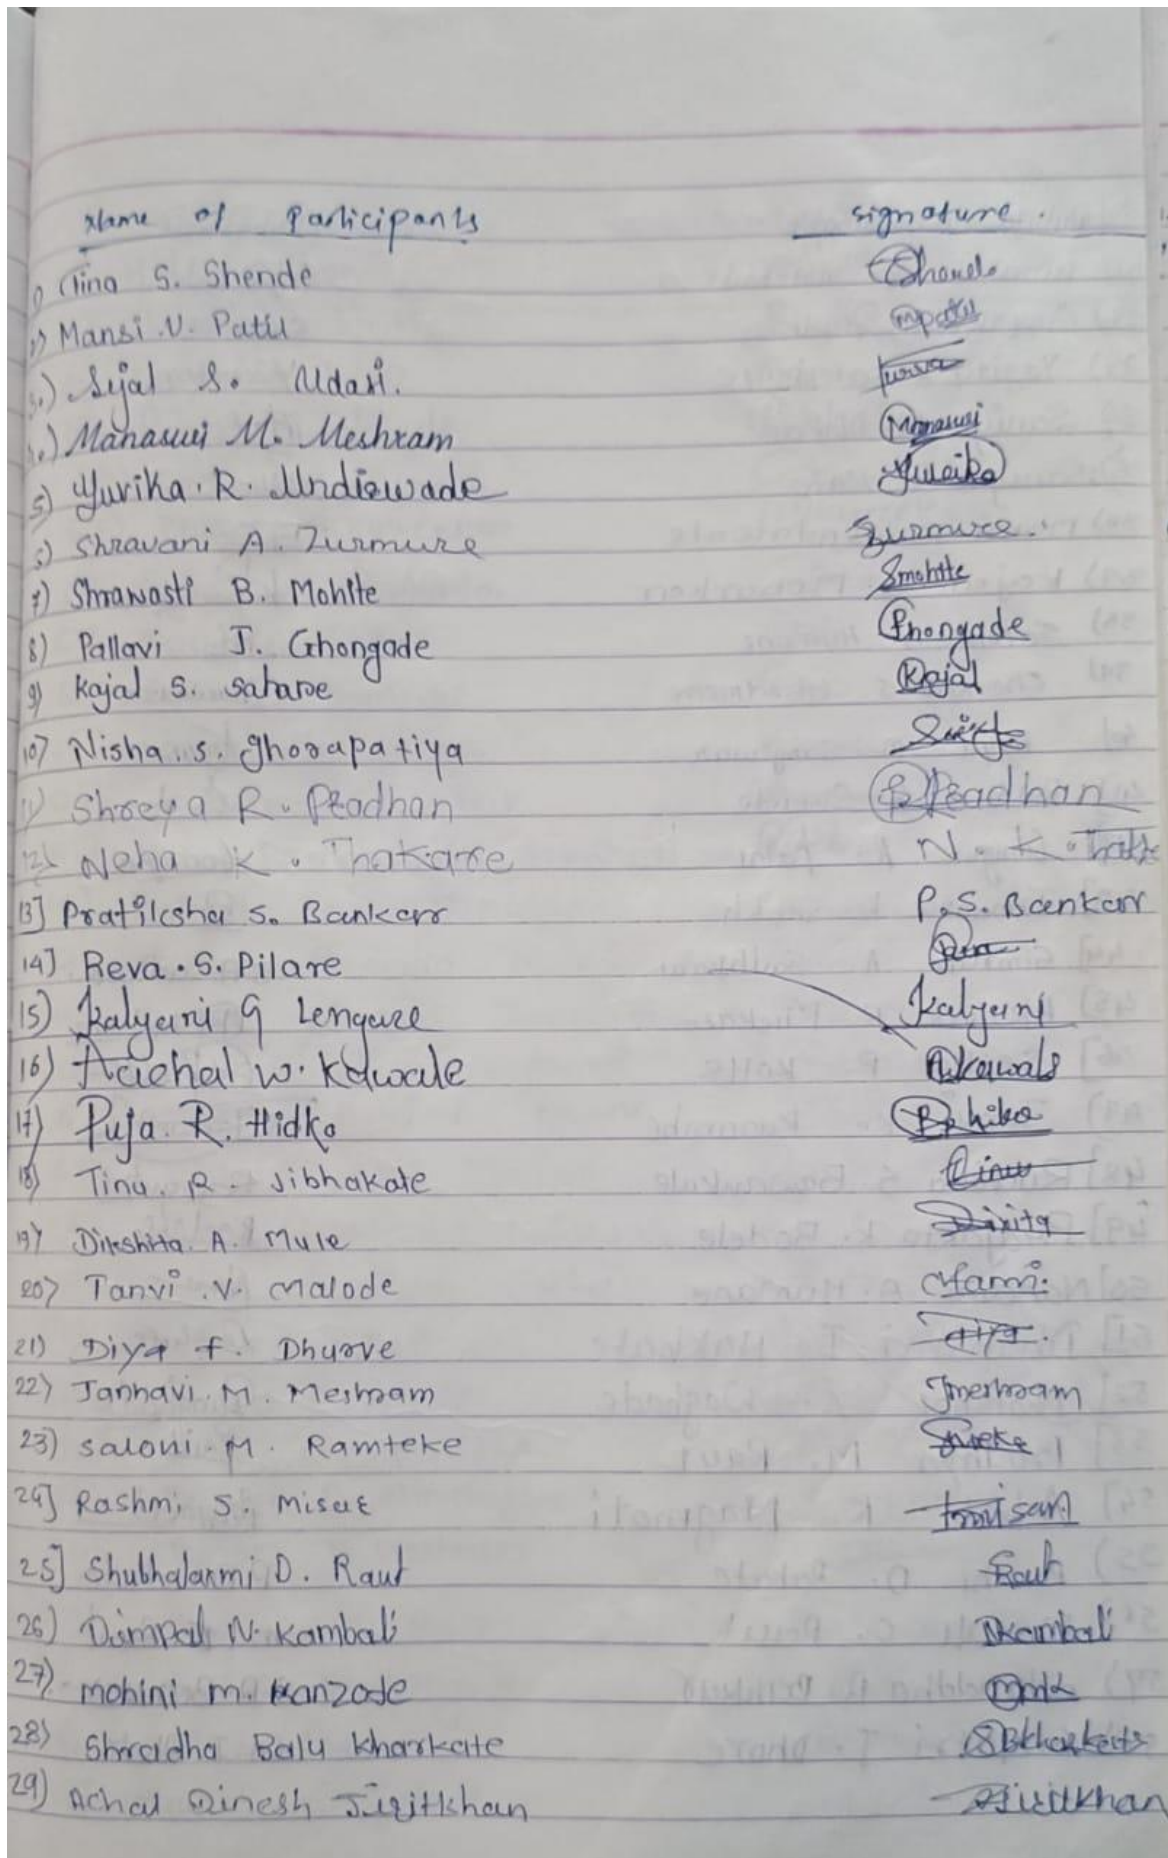 Name of Participants signature.
1) Tina S. Shende Shende
2) Mansi .V. Patil mpatil
3.) Sejal S. Udasi.
4.) Manaswi M. Meshram Manaswi
5) Yurika . R. Undirwade Yureika
6) Shravani A. Zurmure Zurmure.
7) Shrawasti B. Mohite Smohite
8) Pallavi J. Ghongade Phongade
9) Kajal S. Sahare Kajal
10) Nisha . s. ghorapatiya
11) Shreya R. Pradhan Pradhan
12) Neha K . Thakare N . K . Thak
13] Pratiksha S. Bankar P. S. Bankar
14] Reva . S. Pilare
15) Kalyani G Lengure Kalyani
16) Aachal W. Kawale A.kawale
17) Puja. R. Hidko
18) Tinu . R . Jibhakate Tinu
19) Dikshita. A. Mule Dixita
20) Tanvi .V. Malode
21) Diya f. Dhurve Diya.
22) Janhavi . M . Meshram Jmeshram
23) saloni . M . Ramteke
24] Rashmi S. Misar
25] Shubhalaxmi D. Raut Raut
26) Dimpal N. Kambali Dkambali
27) mohini m. Kanzode mmk
28) Shradha Balu Kharkate SBkharkate
29) Achal Dinesh Jiritkhan Jiritkhan